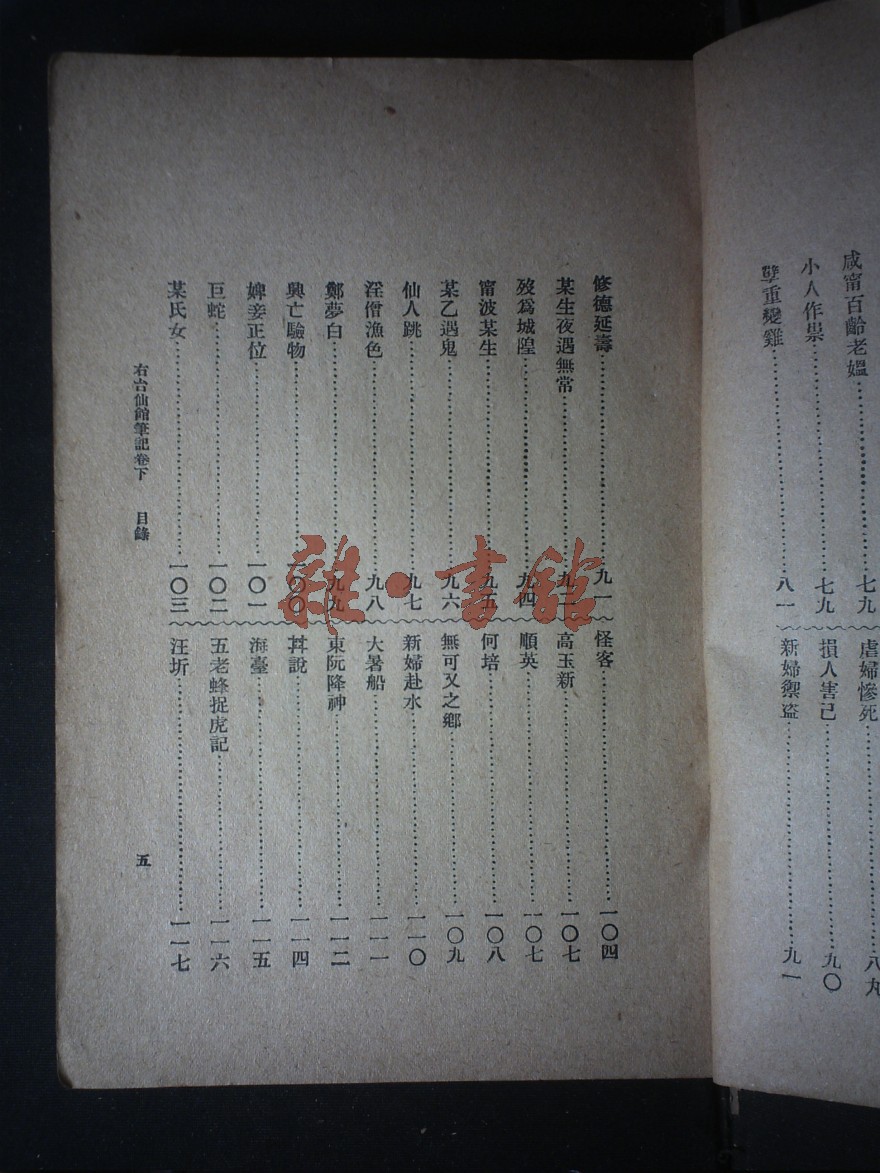 咸甯百齡老媼……七九
小人作祟……七九
孽重變雞……八一
虐婦慘死……八九
損人害己……九〇
新婦禦盜……九一
修德延壽……九一
某生夜遇無常……九二
歿爲城隍……九四
甯波某生……九五
某乙遇鬼……九六
仙人跳……九七
淫僧漁色……九八
鄭夢白……九九
興亡驗物……一〇〇
婢妾正位……一〇一
巨蛇……一〇二
某氏女……一〇三
怪客……一〇四
高玉新……一〇七
順英……一〇七
何培……一〇八
無可又之鄉……一〇九
新婦赴水……一一〇
大暑船……一一一
東阮降神……一一二
丼說……一一四
海臺……一一五
五老蜂捉虎記……一一六
汪圻……一一七
右台仙館筆記卷下 目錄 五
雜·書館